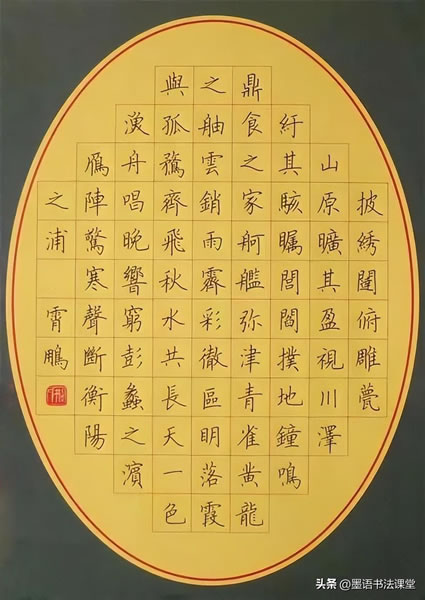 披綉闥俯雕甍
山原曠其盈視川澤
紆其駭矚閭閻撲地鐘鳴
鼎食之家舸艦弥津青雀黄龍
之舳雲銷雨霽彩徹區明落霞
與孤鶩齊飛秋水共長天一色
漁舟唱晚響窮彭蠡之濱
鴈陣驚寒聲斷衡陽
之浦 霄鵬
头条 @墨语书法课堂